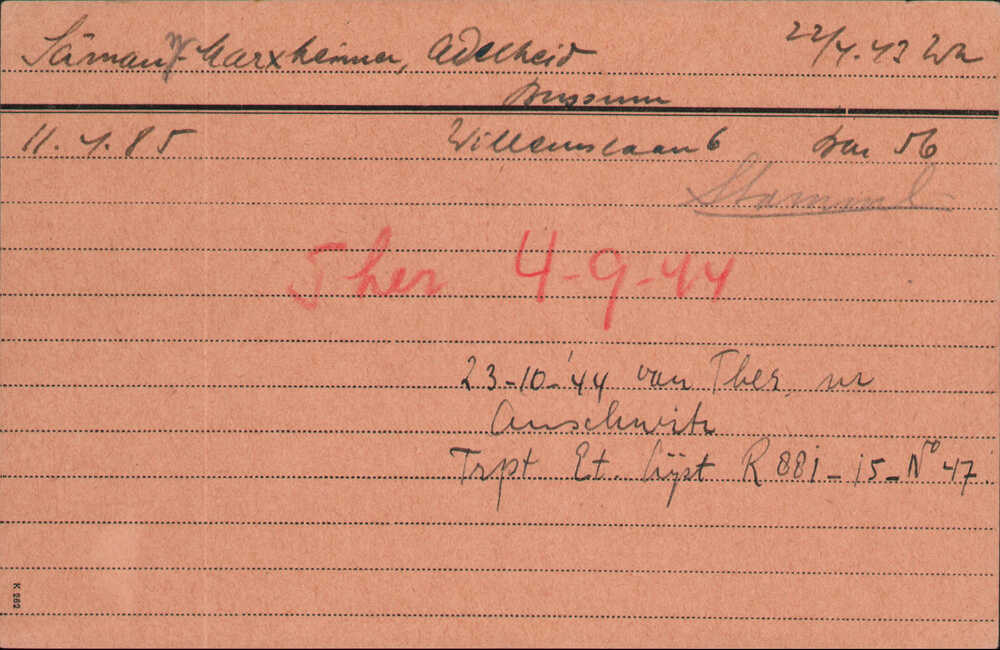 Sämann-Marxheimer, Adelheid 22/4.43 Wh
Bussum
11.4.85 Willemslaan 6 bar 56
Stammt
Ther 4-9-44
23-10-'44 van Ther. nr
Auschwitz
Trpt Et. lijst R 881-15-No 47.
K 262